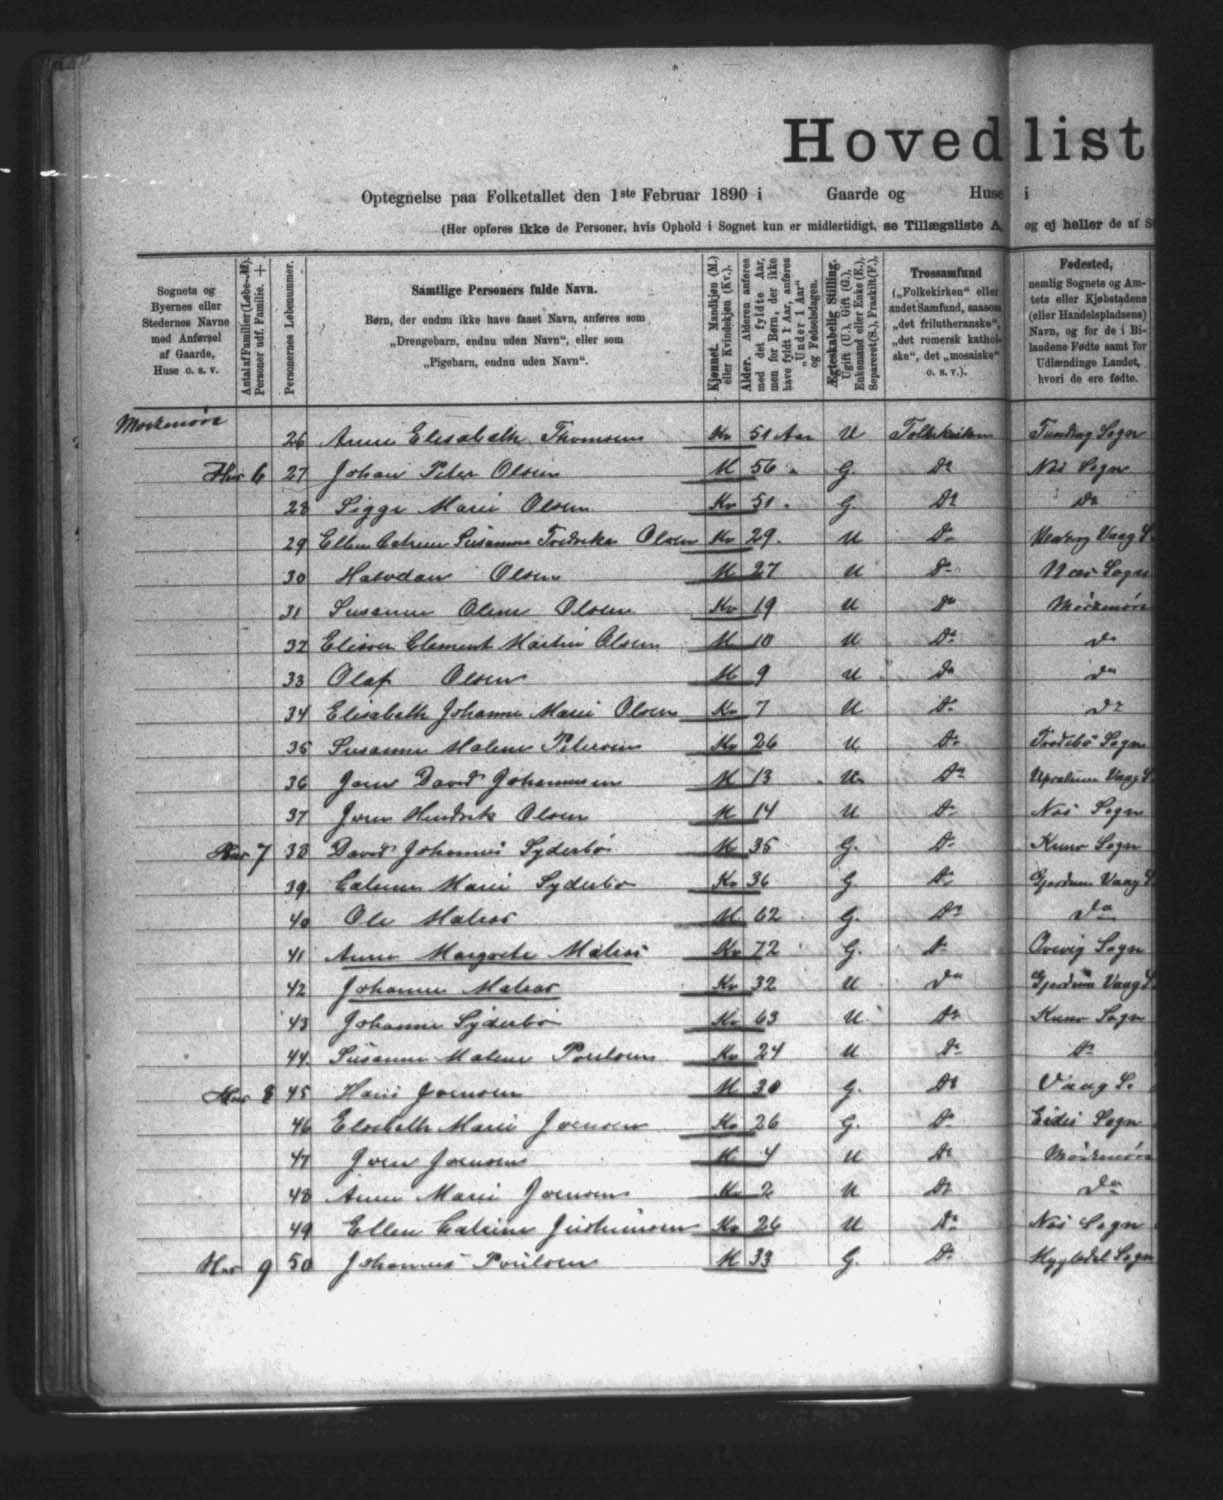 Hovedlist
Optegnelse paa Folketallet den 1ste Februar 1890 i Gaarde og Huse i
(Her opføres ikke de Personer, hvis Ophold i Sognet kun er midlertidigt, se Tillægsliste A, og ej heller de af S
Sognets og Byernes eller Stedernes Navne med Anførsel af Gaarde, Huse o. s. v.
Antal af Familier (Løbe-№). Personer udf. Familie. +
Personernes Løbenummer.
Samtlige Personers fulde Navn.
Børn, der endnu ikke have faaet Navn, anføres som „Drengebarn, endnu uden Navn“, eller som „Pigebarn, endnu uden Navn“.
Kjønnet. Mandkjøn (M.) eller Kvindekjøn (Kv.).
Alder. Alderen anføres med det fyldte Aar, men for Børn, der ikke have fyldt 1 Aar, anføres „Under 1 Aar“ og Fødselsdagen.
Ægteskabelig Stilling. Ugift (U.), Gift (G.), Enkemand eller Enke (E.), Separeret (S.), Fraskilt (F.).
Trossamfund („Folkekirken“ eller andet Samfund, saasom „det frilutheranske“, „det romersk kathol- ske“, det „mosaiske“ o. s. v.).
Fødested, nemlig Sognets og Am- tets eller Kjøbstadens (eller Handelspladsens) Navn, og for de i Bi- landene Fødte samt for Udlændinge Landet, hvori de ere fødte.
26 Anne Elisabeth Thomsen Kv 51 Aar U Folkekirken Funding Sogn
Hus 6 27 Johan Peter Olsen M 56 G. Do Nes Sogn
28 Sigge Marie Olsen Kv 51 G. Do Do
29 Ellen Catrine Susanne Fredrikke Olsen Kv 29 U Do Vaag S.
30 Halvdan Olsen M 27 U Do Næs Sogn
31 Susanne Oline Olsen Kv 19 U Do Mørkenøre
32 Clement Martin Olsen M 10 U Do Do
33 Olaf Olsen M 9 U Do Do
34 Elisabeth Johanne Marie Olsen Kv 7 U Do Do
35 Susanne Malene Petersen Kv 26 U Do Sogn
36 Jens David Johannesen M 13 U Do Vaag S.
37 Joen Hendrik Olsen M 14 U Do Nes Sogn
Hus 7 38 David Johannes Syderbø M 35 G. Do Kuno Sogn
39 Catrine Marie Syderbø Kv 36 G. Do Vaag S.
40 Ole Matras M 62 G. Do Do
41 Anne Margrete Matras Kv 72 G. Do Qvevig Sogn
42 Johanne Matras Kv 32 U Do Vaag S.
43 Johanne Syderbø Kv 63 U Do Kuno Sogn
44 Susanne Malene Poulsen Kv 24 U Do Do
Hus 8 45 Hans Joensen M 30 G. Do Vaag S.
46 Elsebeth Marie Joensen Kv 26 G. Do Eides Sogn
47 Joen Joensen M 4 U Do Mørkenøre
48 Anne Marie Joensen Kv 2 U Do Do
49 Ellen Catrine Justinusen Kv 26 U Do Nes Sogn
Hus 9 50 Johannes Poulsen M 33 G. Do Sogn